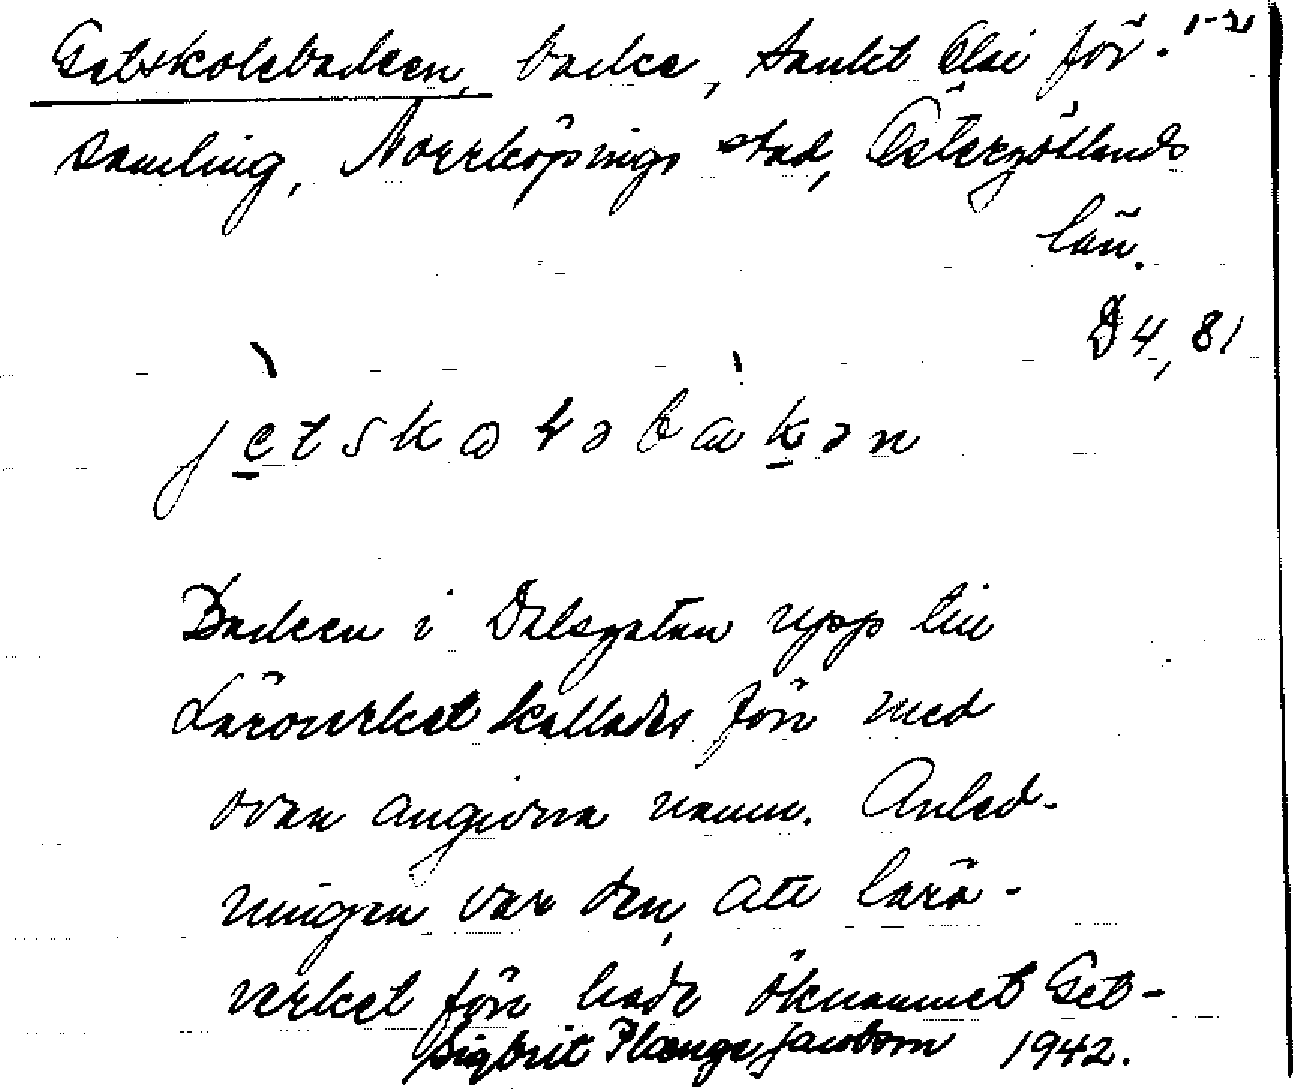 Getskolebacken, backe, Sankt Olai för- 1-21
samling, Norrköpings stad, Östergötlands
län.
D 4, 81
Backen i Dalsgatan upp till
Läroverket kallades förr med
ovan angivna namn. Anled-
ningen var den, att läro-
verket förr hade öknamnet Get-
Sigbrit Plænge Jacobson 1942.